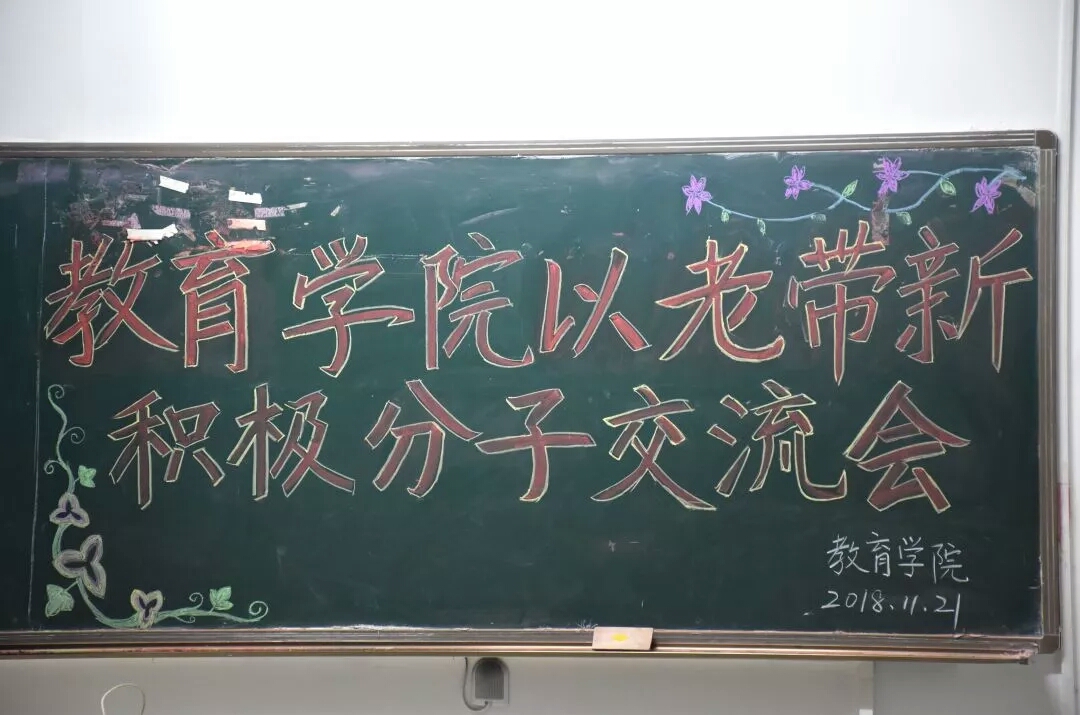 教育学院以老带新
积极分子交流会
教育学院
2018.11.21